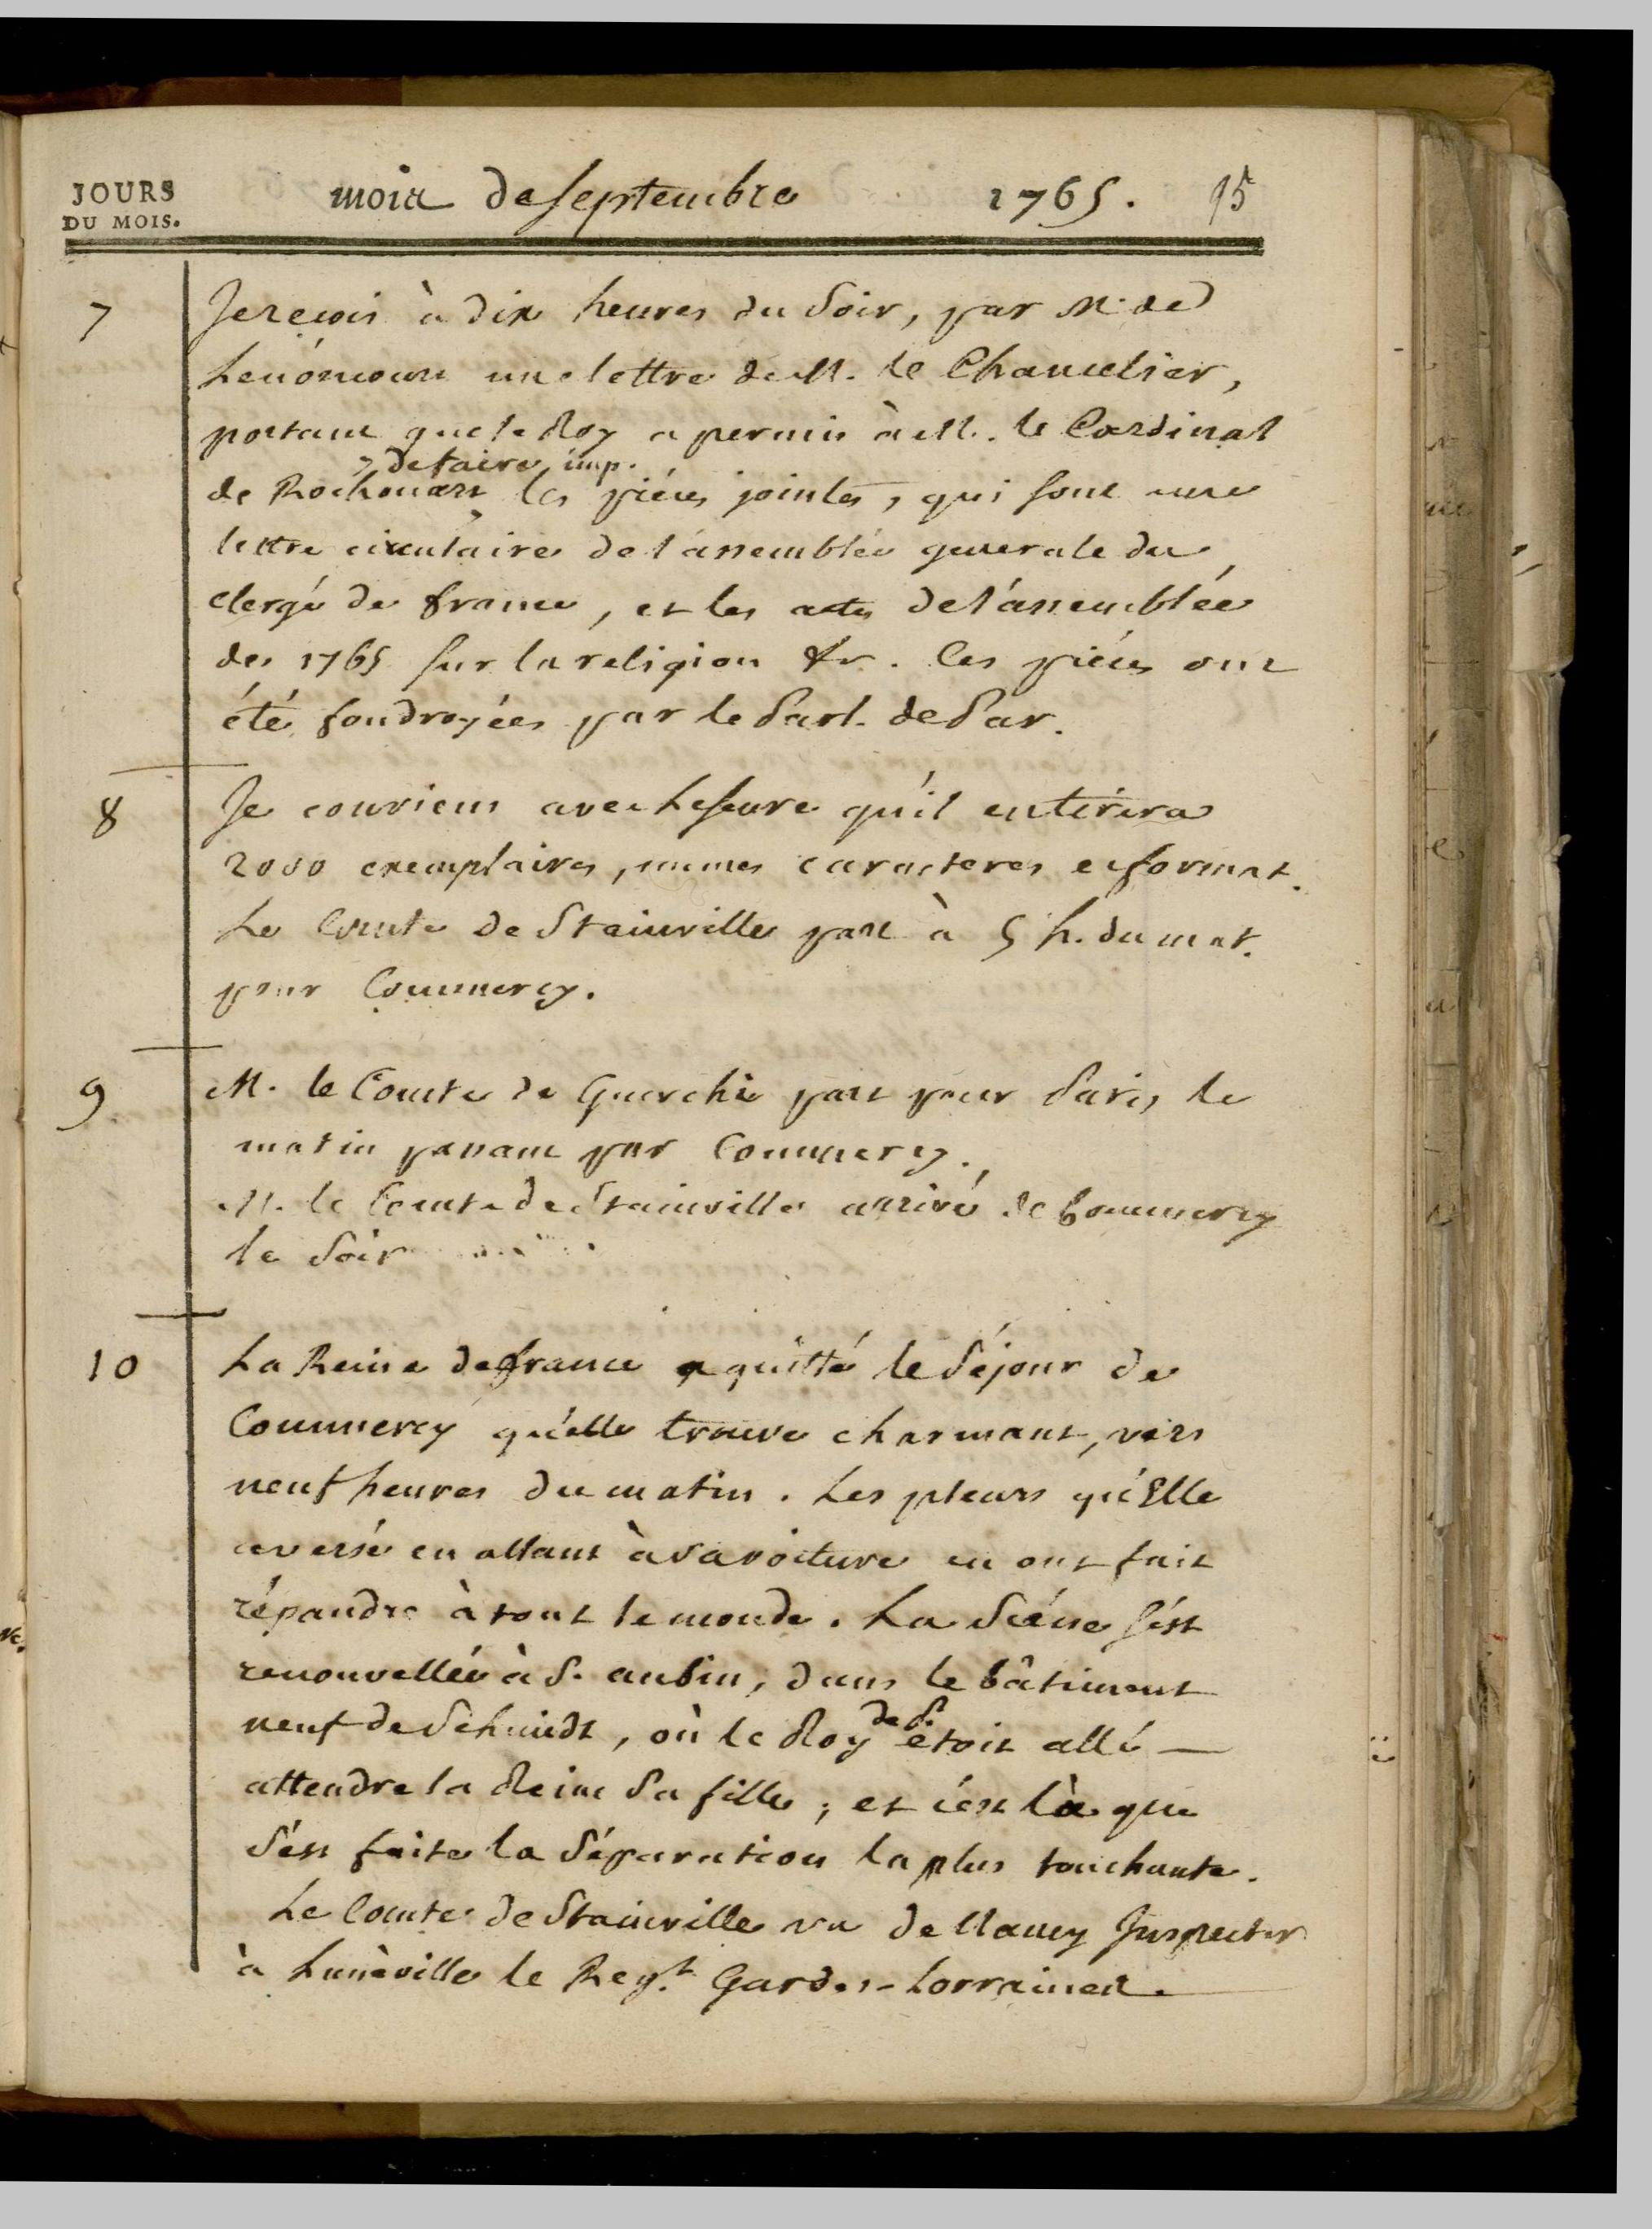 JOURS
DU MOIS.
mois de septembre 1765. 95
7 Je reçois à dix heures du Soir, par M. de
Lenóncourt une lettre de M. le Chancelier,
portant que le Roy a permis à M. le Cardinal
de faire imp.
de Rochouart les piéces jointes, qui sont une
lettre circulaire de l'assemblée generale du
clergé de france, et les actes de l'assemblée
de 1765 sur la religion &c. Ces piéces ont
été foudroyées par le Parl. de Par.
8 Je conviens avec Leseure qu'il en tirera
2000 exemplaires, mêmes caracteres et format.
Le Comte de Stainville part à 5 h. du mat.
pour Commercy.
9 M. le Comte de Guerchi part pour Paris le
matin passant par Commercy.
M. le Comte de Stainville arrivé de Commercy
le Soir
10 La Reine de france a quitté le Séjour de
Commercy qu'elle trouve charmant, vers
neuf heures du matin. Les pleurs qu'Elle
a versé en allant à sa voiture en ont fait
répandre à tout le monde. La Scéne s'est
renouvellée à S. aubin, dans le bâtiment
neuf de Schmidt, où le Roy de P. étoit allé
attendre la Reine Sa fille; et c'est là que
S'est faite la Séparation la plus touchante.
Le Comte de Stainville va de Nancy Inspecter
à Lunéville le Regt. Gardes-Lorraines.